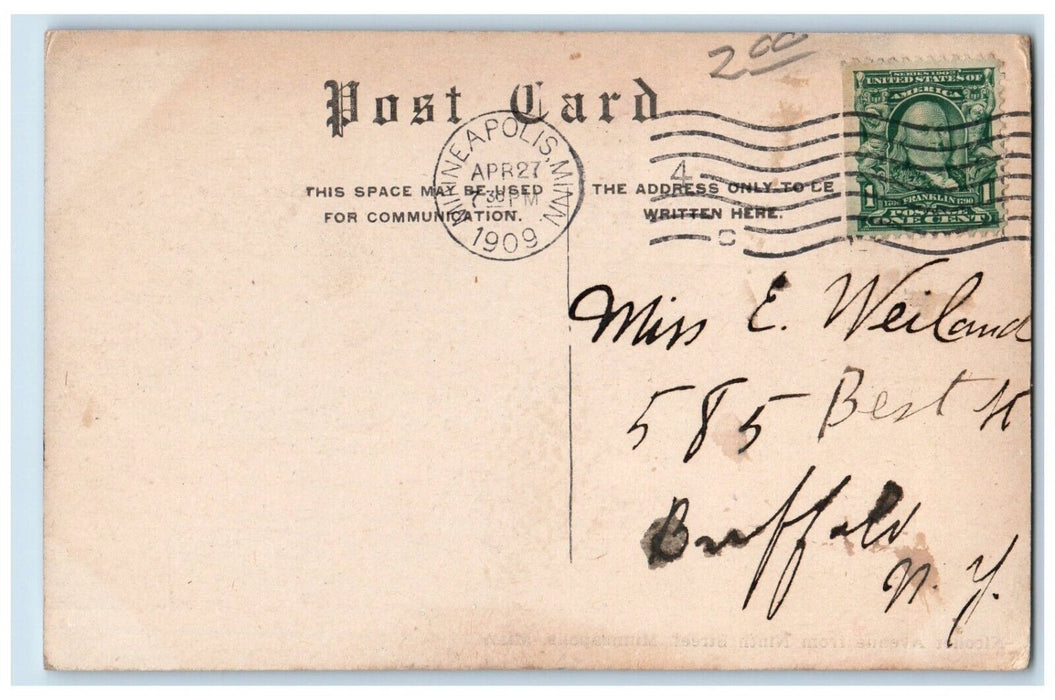 2 00
Post Card
SERIES 1902
UNITED STATES OF
AMERICA
MINNEAPOLIS, MINN
APR 27
7 30 PM
1909
4
C
THIS SPACE MAY BE USED
FOR COMMUNICATION.
THE ADDRESS ONLY TO BE
WRITTEN HERE.
1 1
1706 FRANKLIN 1790
POSTAGE
ONE CENT
Miss E. Weiland
585 Best St
Buffalo
N. Y.
Nicollet Avenue from Ninth Street, Minneapolis, Minn.